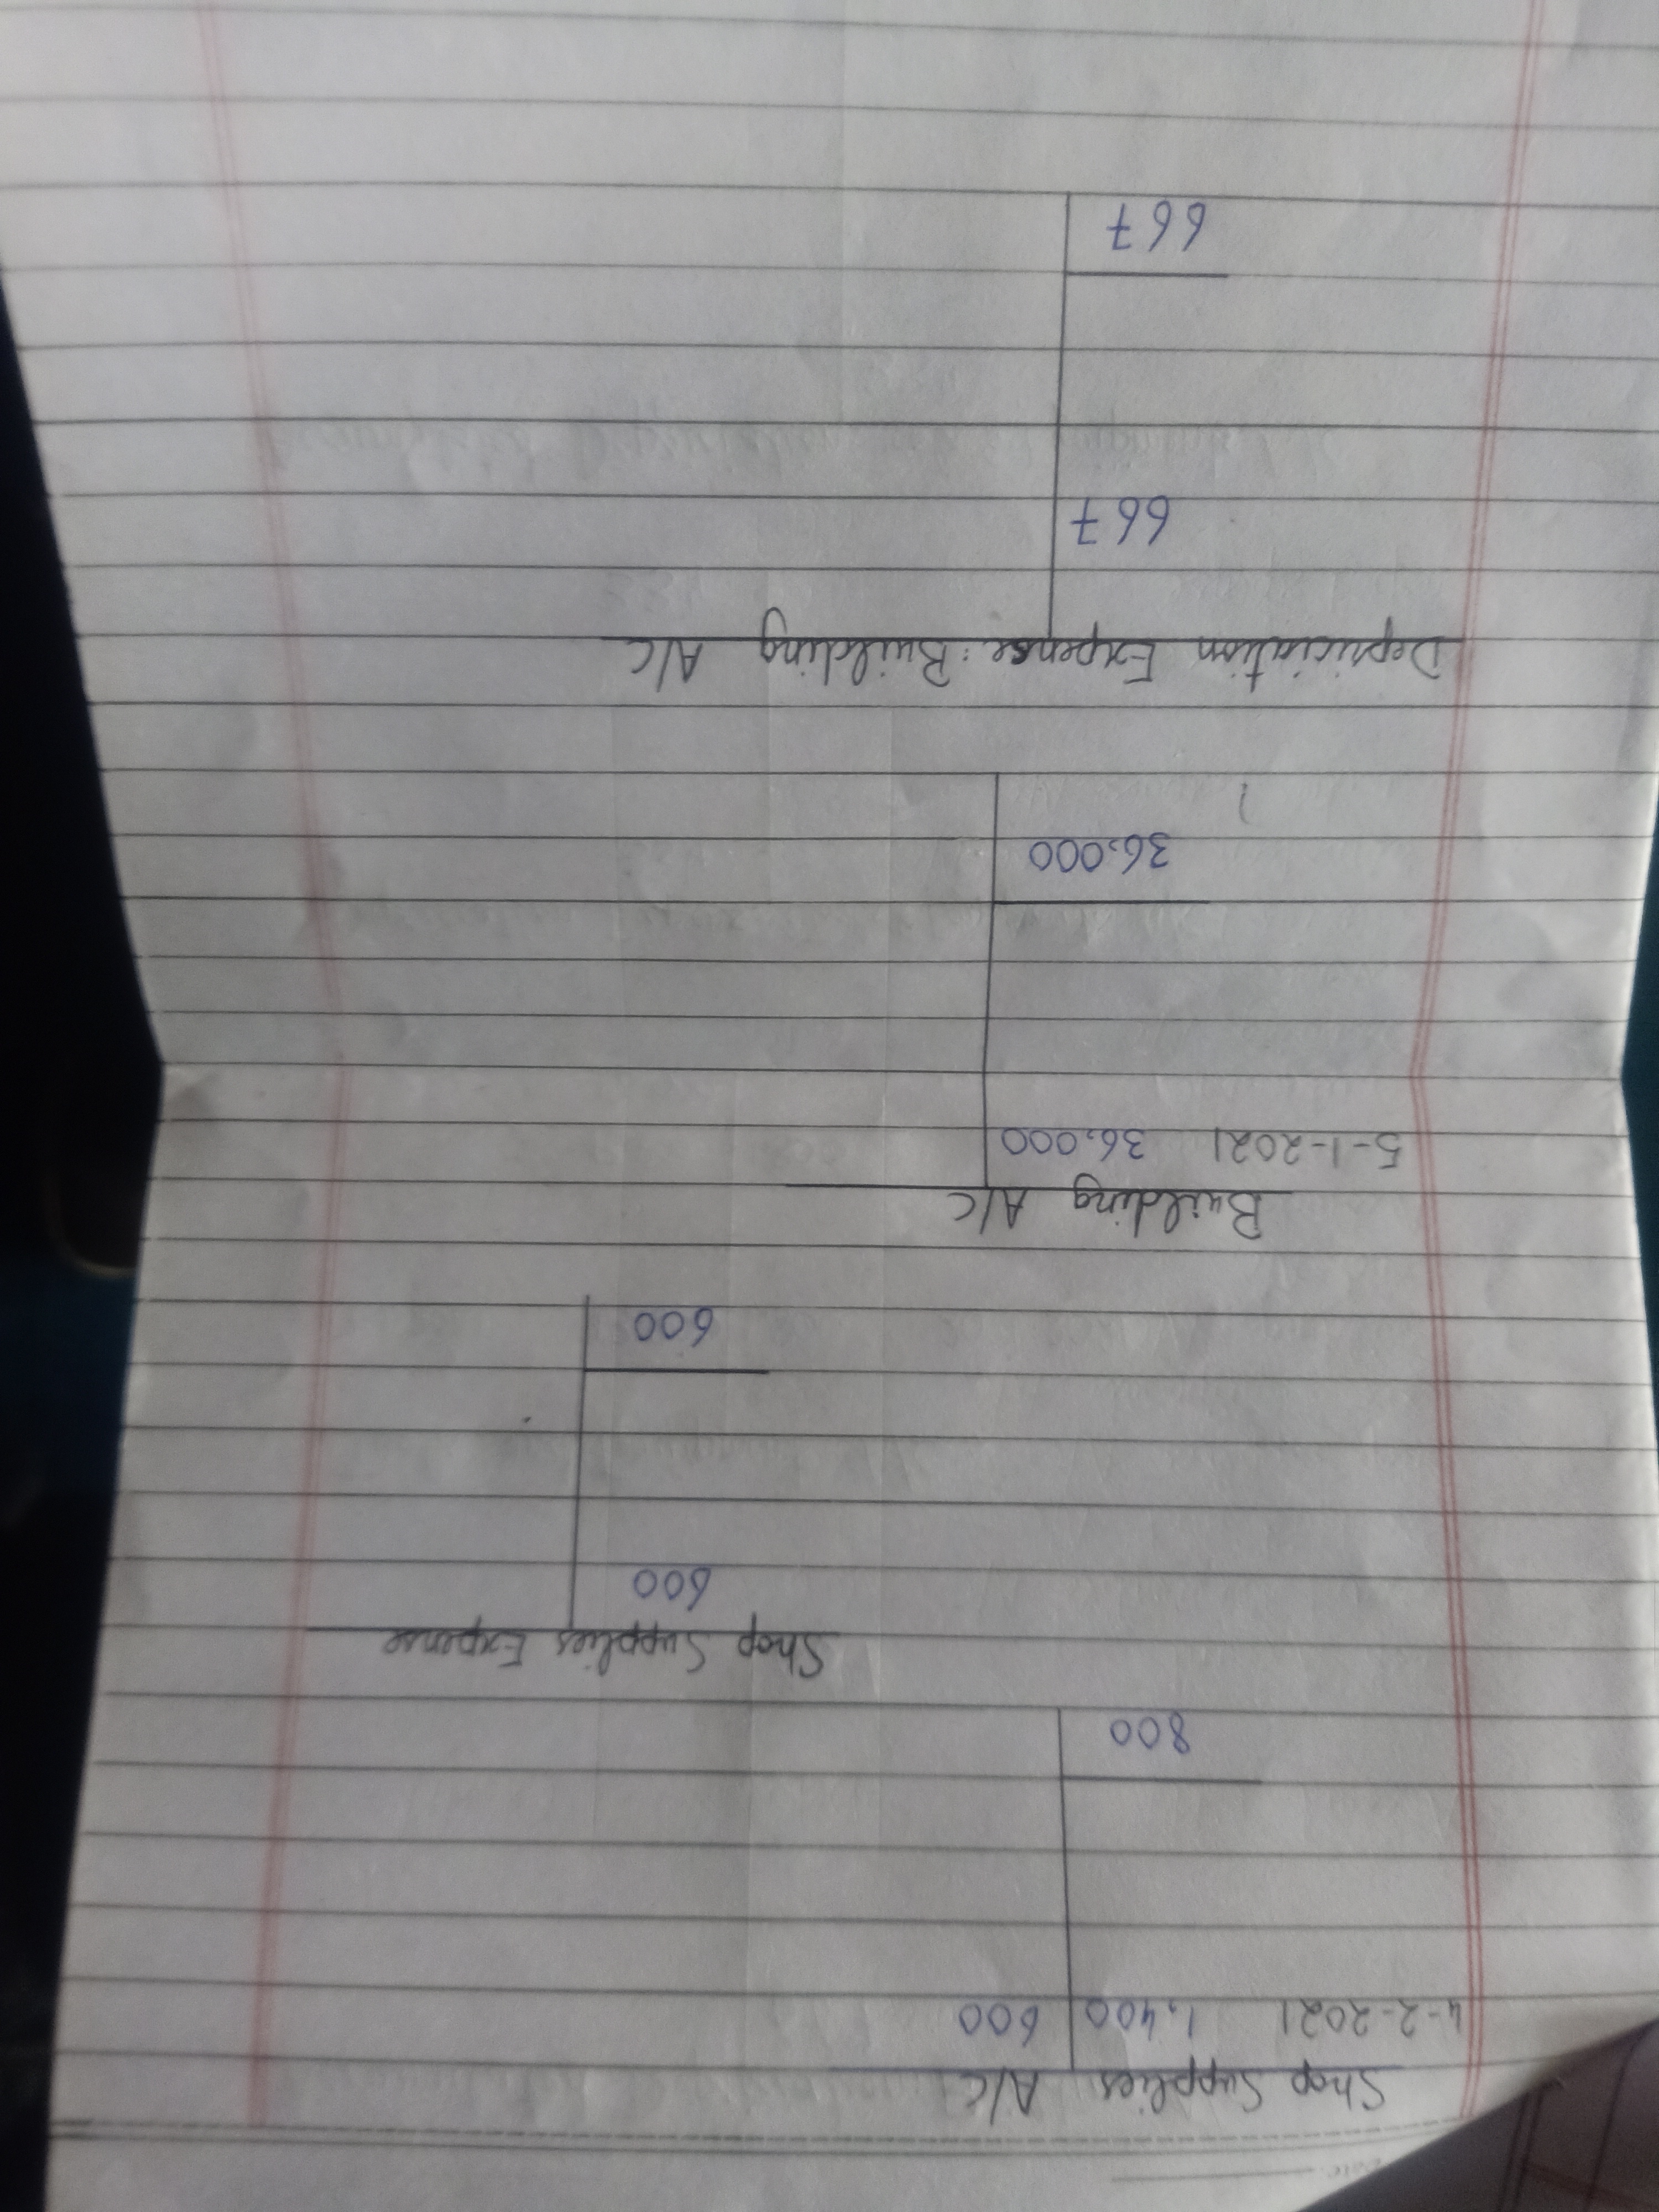 Date.
Shop Supplies A/C
4-2-2021 1,400 600
800
Shop Supplies Expense
600
600
Building A/C
5-1-2021 36,000
36,000
Depriciation Expense: Building A/C
667
667